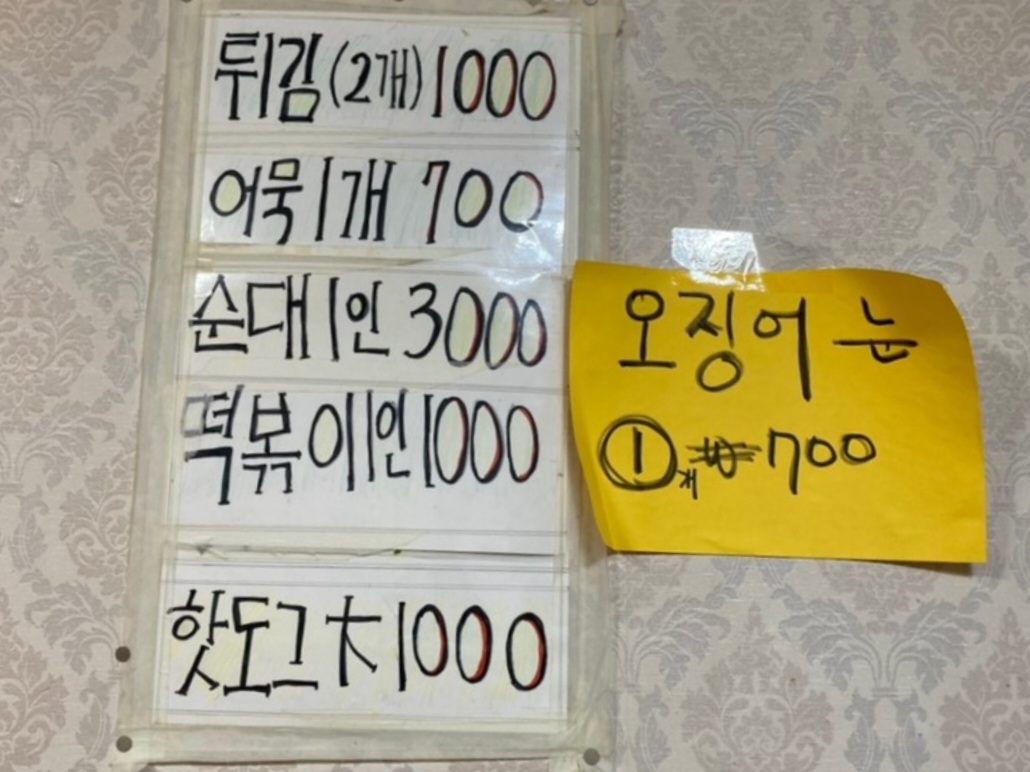 튀김(2개)1000
어묵1개 700
순대1인 3000
떡볶이1인1000
핫도그 大1000
오징어 눈
①개 ₩700